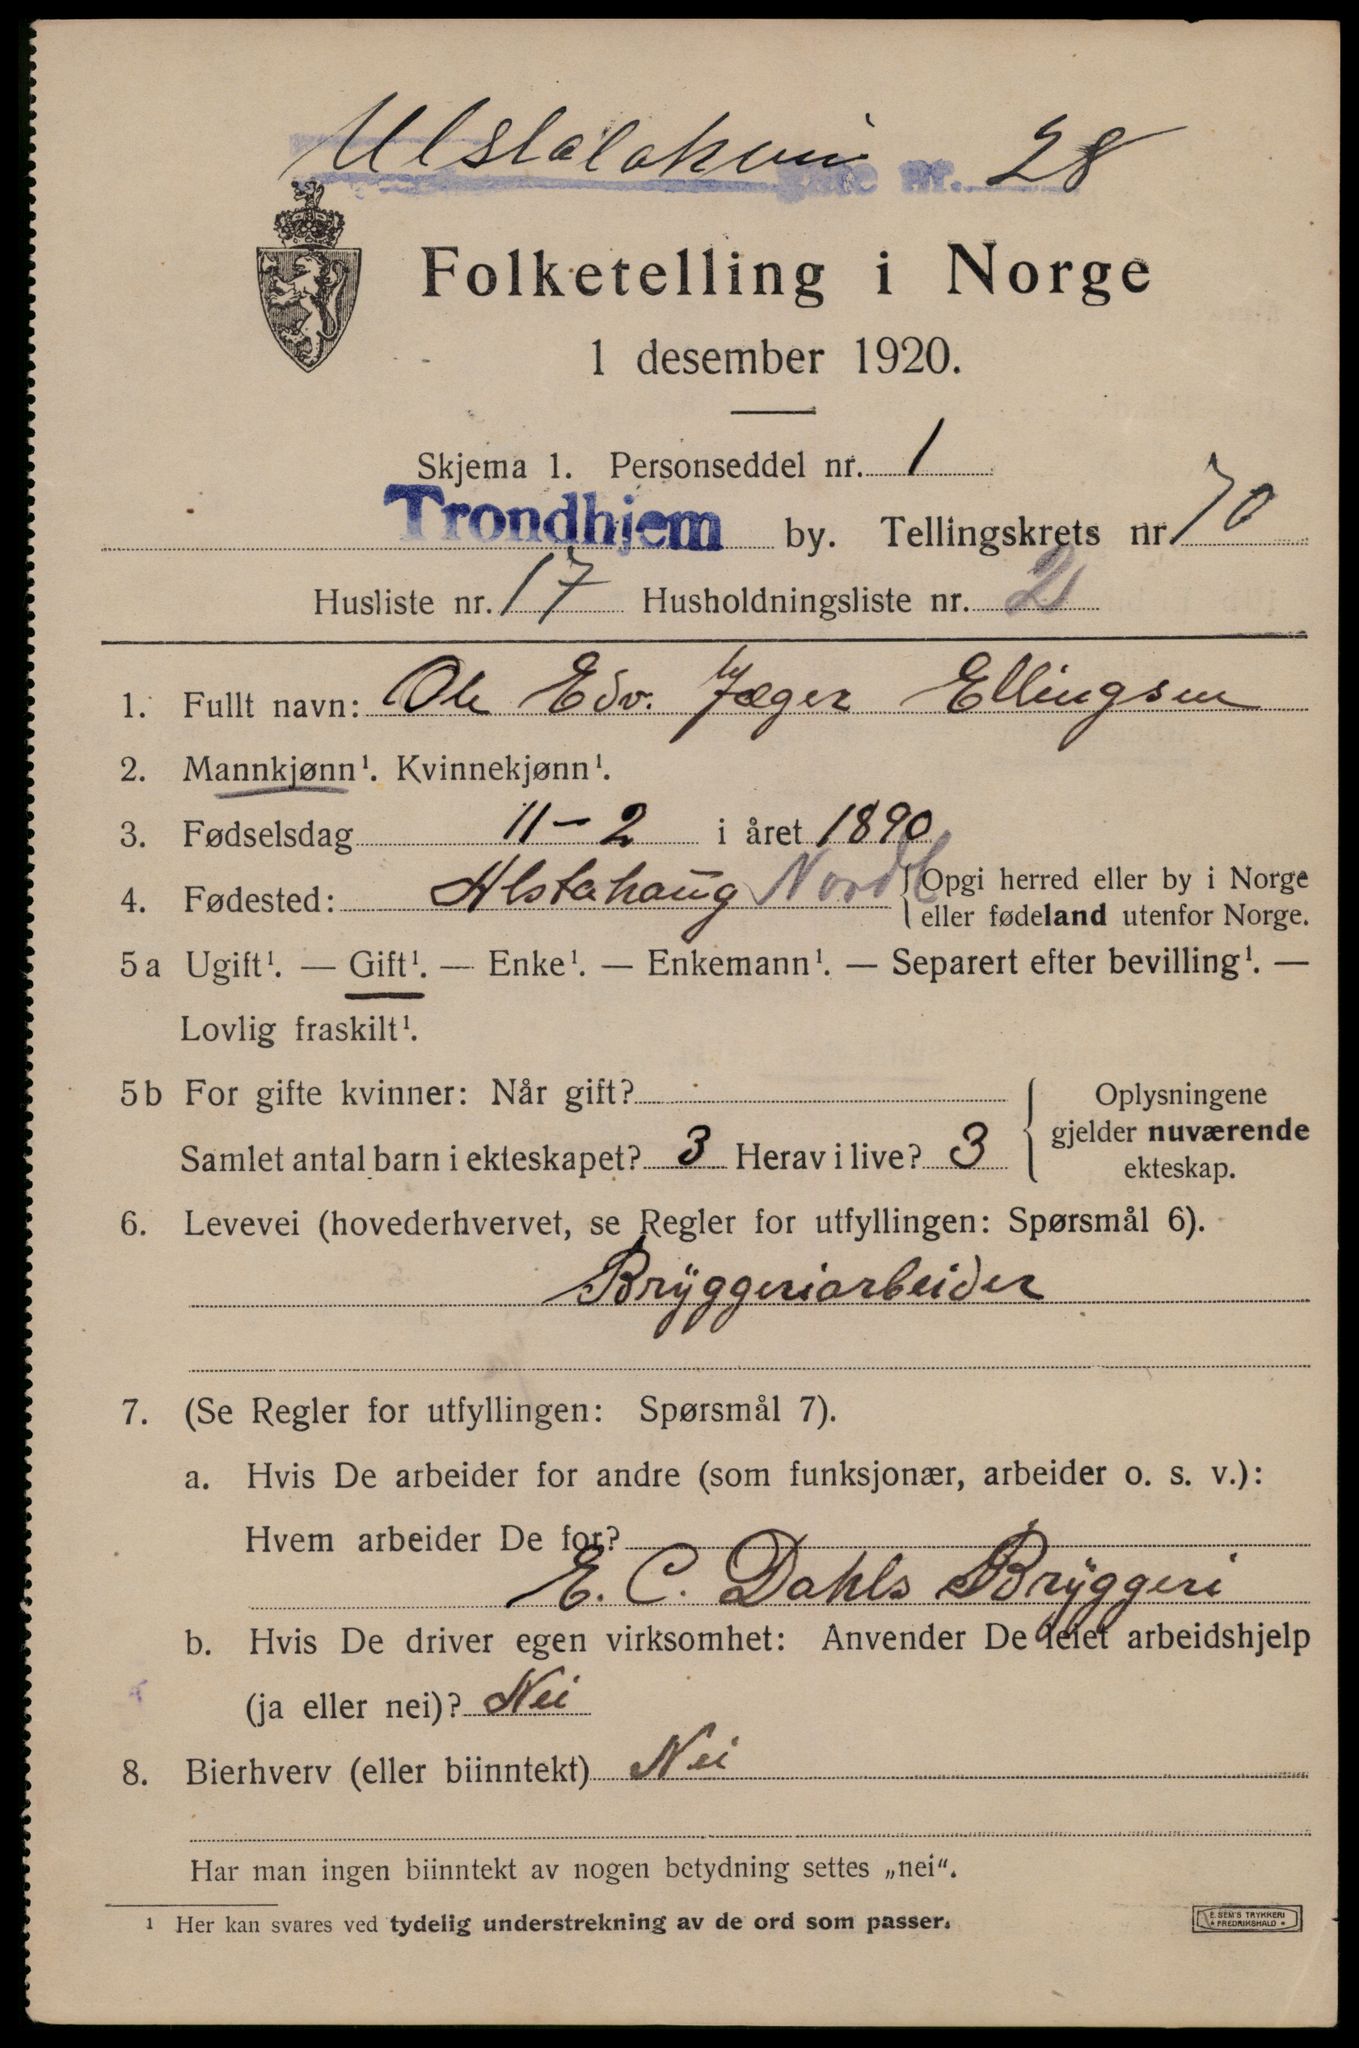 28
gate nr.
Folketelling i Norge
1 desember 1920.
Skjema 1. Personseddel nr. 1
Trondhjem by. Tellingskrets nr. 70
Husliste nr. 17 Husholdningsliste nr. 2
1. Fullt navn: Ole Edv. Jæger Ellingsen
2. Mannkjønn¹. Kvinnekjønn¹.
3. Fødselsdag 11-2 i året 1890
4. Fødested: Alstahaug Nordl { Opgi herred eller by i Norge
eller fødeland utenfor Norge.
5a Ugift¹. — Gift¹. — Enke¹. — Enkemann¹. — Separert efter bevilling¹. —
Lovlig fraskilt¹.
5b For gifte kvinner: Når gift?
Samlet antal barn i ekteskapet? 3 Herav i live? 3
Oplysningene
gjelder nuværende
ekteskap.
6. Levevei (hovederhvervet, se Regler for utfyllingen: Spørsmål 6).
Brÿggeriarbeider
7. (Se Regler for utfyllingen: Spørsmål 7).
a. Hvis De arbeider for andre (som funksjonær, arbeider o. s. v.):
Hvem arbeider De for?
E. C. Dahls Brÿggeri
b. Hvis De driver egen virksomhet: Anvender De leiet arbeidshjelp
(ja eller nei)? Nei
8. Bierhverv (eller biinntekt) Nei
Har man ingen biinntekt av nogen betydning settes „nei".
¹ Her kan svares ved tydelig understrekning av de ord som passer.
E. SEM'S TRYKKERI
FREDRIKSHALD